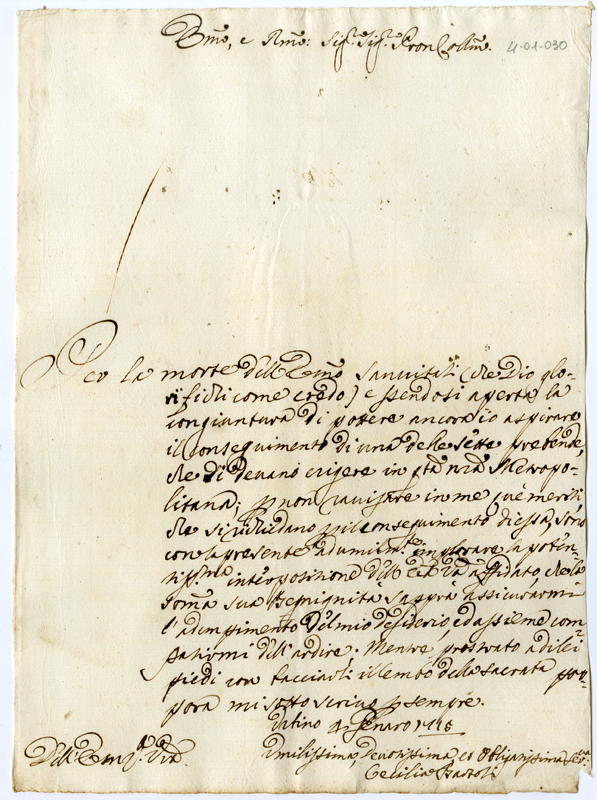 Emo, e Rmo: Sigr. Sigr. Pron Collmo.
4-01-030
Per la morte dell Emo Sanvitali (che Dio glo-
rifichi come credo) essendosi aperta la
congiuntura di potere ancor io aspirare
il conseguimento di una delle sette prebende,
che di devano erigere in Metropo-
litana; p non ravisare in me que meriti,
che si richiedano p il conseguimento di essa, sono
con la presente ad umilmte. implorare la poten-
tissma interposizione dell Em Va affidato, che la
somma sua Benignità saprà assicurarmi
l'adempimento del mio desiderio, ed assieme com
patirmi dell'ardire. Mentre prostrato a di lei
piedi con bacciarli il lembo della sacrata por-
pora mi sotto scrivo p sempre.
Urbino Genaro
Dell Em Va
Umilissima, Devotissima, et Obligatissima
Cecilia